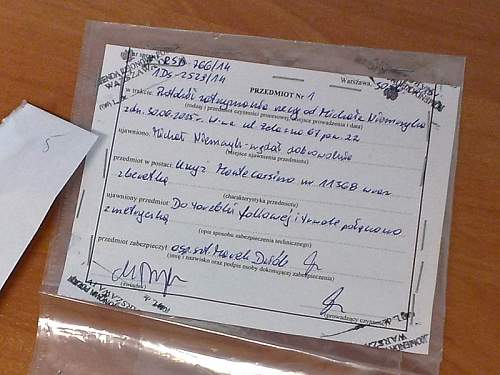 RSD-766/14
1Ds-2523/14
Warszawa, 30.06
PRZEDMIOT Nr 1
w trakcie: zatrzymania rzeczy od Michała Niemczyka
(rodzaj i przedmiot czynności procesowej, miejsce prowadzenia i data)
zdn. 30.06.2015r. W-wa ul. Żelazna 67 m. 22
ujawniono: Michał Niemczyk - wydał dobrowolnie
(miejsce ujawnienia przedmiotu)
przedmiot w postaci: Krzyż Monte Cassino nr 11368 wraz
z beretką
(charakterystyka przedmiotu)
ujawniony przedmiot: Do torebki foliowej i trwale połączono
z metryczką
(opis sposobu zabezpieczenia technicznego)
przedmiot zabezpieczył: asp. szt. Marek
(imię i nazwisko oraz podpis osoby dokonującej zabezpieczenia)
(świadek)
(prowadzący czynność)